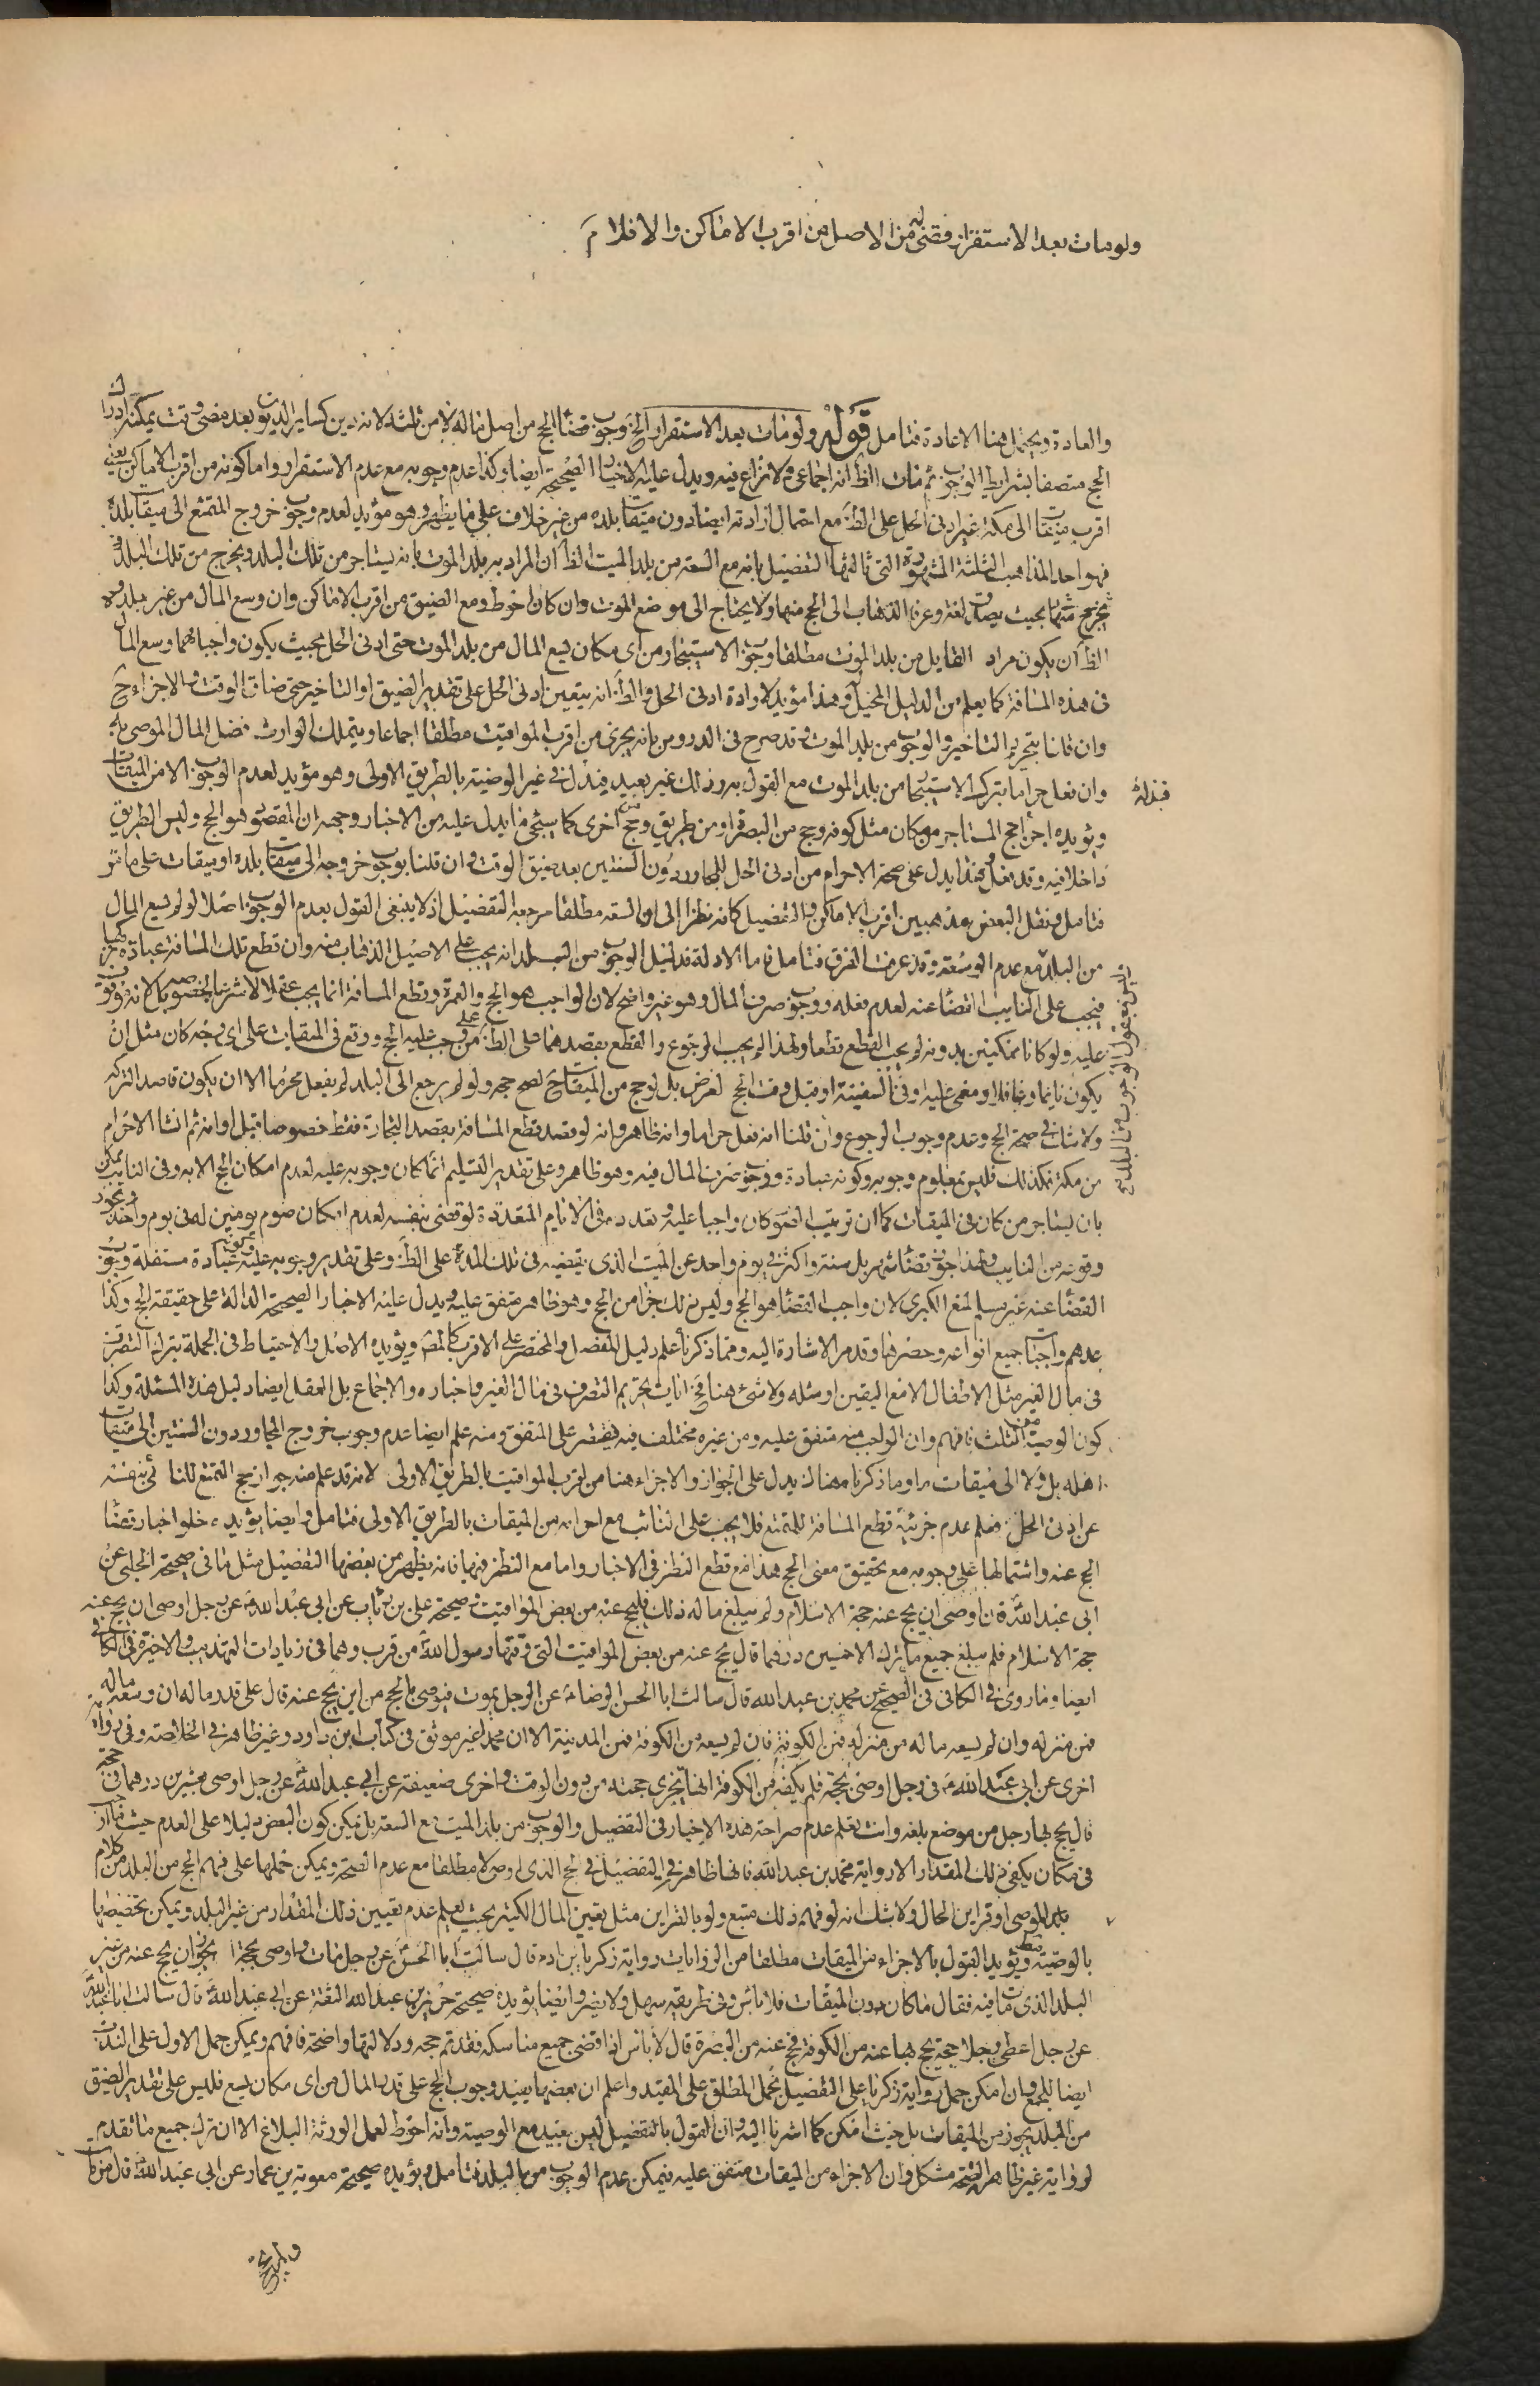 ولو مات بعد الاستقرار قضى عنه من الاصل من اقرب الاماكن والا فلا م
والعادة ويحتمل هنا الاعادة فتامل قوله ولو مات بعد الاستقرار الخ وجوب قضاء الحج من اصل ماله لا من ثلثه لانه دين كساير الديون بعد مضى وقت يمكنه ادراك
الحج متصفا بشرايط الوجوب ثم مات الظ انه اجماعى ولا نزاع فيه ويدل عليه الاخبار الصحيحة ايضا وكذا عدم وجوبه مع عدم الاستقرار واما كونه من اقرب الاماكن يعنى
اقرب ميقات الى مكة غير ادنى الحل على الظ مع احتمال ارادته ايضا دون ميقات بلده من غير خلاف على ما يظهر وهو مؤيد لعدم وجوب خروج المتمتع الى ميقات بلده
فهو احد المذاهب الثلثة المشهورة التى ثالثها التفصيل بانه مع السعة من بلد الميت الظ ان المراد به بلد الموت بانه يستاجر من تلك البلد ويخرج من تلك البلد
يخرج منها بحيث يصدق لغة وعرفا الذهاب الى الحج منها ولا يحتاج الى موضع الموت وان كان احوط ومع الضيق من اقرب الاماكن وان وسع المال من غير بلده
الظ ان يكون مراد القايل من بلد الموت مطلقا وجوب الاستيجار من اى مكان يسع المال من بلد الموت حتى ادنى الحل بحيث يكون واجبا مهما وسع المال
فى هذه المسافة كما يعلم من الدليل المخيل وهذا مؤيد لارادة ادنى الحل والظ انه يتعين ادنى الحل على تقدير الضيق او التاخير حتى ضاق الوقت والاجزاء ح
وان قلنا بتحريم التاخير والوجوب من بلد الموت وقد صرح فى الدروس بانه يجزى من اقرب المواقيت مطلقا اجماعا ويتملك الوارث فضل المال الموصى به
وان فعل حراما بترك الاستيجار من بلد الموت مع القول به وذلك غير بعيد فيدل فى غير الوصية بالطريق الاولى وهو مؤيد لعدم الوجوب الا من الميقات
ويؤيده اجزاء حج المستاجر من مكان مثل كوفة وحج من البصرة او من طريق وحج من اخرى كما سيجئ ما يدل عليه من الاخبار وجهه ان المقصود هو الحج وليس الطريق
داخلا فيه وقد فعل وكذا يدل على صحة الاحرام من ادنى الحل للمجاور دون السنتين بعد ضيق الوقت وان قلنا بوجوب خروجه الى ميقات بلده او ميقات على ما مر
فتامل ونقل البعض مذهبين اقرب الاماكن والتفصيل كانه نظرا الى ان السعة مطلقا مرجعه التفصيل اذ لا ينبغى القول بعدم الوجوب اصلا لو لم يسع المال
من البلد مع عدم الوسعة وقد عرفت الفرق فتامل واما الادلة فدليل الوجوب من البلد انه يجب على الاصيل الذهاب منه وان قطع تلك المسافة عبادة
فيجب على النايب القضاء عنه لعدم فعله ووجوب صرف المال وهو غير واضح لان الواجب هو الحج والعمرة وقطع المسافة انما يجب عقلا لا شرعا
عليه ولو كانا ممكنين بدونه لم يجب القطع قطعا ولهذا لم يجب الرجوع والقطع بقصدهما على الظ على من وجب عليه الحج ووقع فى الميقات على اى وجه كان مثل ان
يكون نايما وغافلا ومغمى عليه وفى السفينة او قبل وقت الحج لغرض بل لو حج من الميقات ح لصح حجه ولو لم يرجع الى البلد لم يفعل محرما الا ان يكون قاصدا لتركه
ولا شك فى صحة الحج وعدم وجوب الرجوع وان قلنا انه فعل حراما وانه ظاهر وانه لو قصد قطع المسافة بقصد التجارة فقط خصوصا قبل اوانه ثم انشا الاحرام
من مكة فكذلك فليس بمعلوم وجوبه وكونه عبادة ووجوب صرف المال فيه وهو ظاهر وعلى تقدير التسليم انما كان وجوبه عليه لعدم امكان الحج الا به وفى النايب يمكن
بان يستاجر من كان فى الميقات كما ان ترتيب الصوم كان واجبا عليه وتعدده فى الايام المتعددة لو قضى بنفسه لعدم امكان صوم يومين له فى يوم واحد ويجوز
وقوعه من النايب ولهذا جوز قضاء شهر بل سنة واكثر فى يوم واحد عن الميت الذى يقضيه فى تلك المدة على الظ وعلى تقدير وجوبه عليه وكونه عبادة مستقلة وجوب
القضاء عنه غير مسلم لمنع الكبرى لان واجب القضاء هو الحج وليس ذلك جزا من الحج وهو ظاهر متفق عليه ويدل عليه الاخبار الصحيحة الدالة على حقيقة الحج وكذا
عدهم واجبات جميع انواعه وحصرها وقد مر الاشارة اليه ومما ذكرنا علم دليل المفصل والمختصر على الاقرب كالمص ويؤيده الاصل والاحتياط فى الجملة بترك التصرف
فى مال الغير مثل الاطفال الا مع اليقين او مثله ولا شئ هنا ح اذ ايات تحريم التصرف فى مال الغير واخباره والاجماع بل العقل ايضا دليل هذه المسئلة وكذا
كون الوصية من الثلث فافهم وان الواجب منه متفق عليه ومن غيره مختلف فيه فيقتصر على المتفق ومنه علم ايضا عدم وجوب خروج المجاور دون السنتين الى ميقات
اهله بل ولا الى ميقات ما وما ذكرنا هناك يدل على الجواز والاجزاء هنا من اقرب المواقيت بالطريق الاولى لانه قد علم منه جواز حج التمتع للنائى بنفسه
عن ادنى الحل فعلم عدم جزئية قطع المسافة للتمتع فلا يجب على النائب مع احرامه من الميقات بالطريق الاولى فتامل وايضا يؤيده خلو اخبار قضاء
الحج عنه واشتمالها على وجوبه مع تحقيق معنى الحج هذا مع قطع النظر فى الاخبار واما مع النظر فيها فانه يظهر من بعضها التفصيل مثل ما فى صحيحة الحلبى عن
ابى عبد الله ع قال وان اوصى ان يحج عنه حجة الاسلام ولم يبلغ ماله ذلك فليحج عنه من بعض المواقيت وصحيحة على بن رئاب عن ابى عبد الله ع عن رجل اوصى ان يحج عنه
حجة الاسلام فلم يبلغ جميع ما ترك الا خمسين درهما قال يحج عنه من بعض المواقيت التى وقتها رسول الله من قرب وهما فى زيادات التهذيب والاخيرة فى الكافى
ايضا وما روى فى الكافى فى الصحيح عن محمد بن عبد الله قال سالت ابا الحسن الرضا ع عن الرجل يموت فيوصى بالحج من اين يحج عنه قال على قدر ماله ان وسعه ماله
فمن منزله وان لم يسعه ماله من منزله فمن الكوفة فان لم يسعه من الكوفة فمن المدينة الا ان محمدا غير موثق فى كتاب ابن داود وغير ظاهر فى الخلاصة وفى رواية
اخرى عن ابى عبد الله ع فى رجل اوصى بحجة فلم يكفه من الكوفة انها تجزى حجته من دون الوقت واخرى ضعيفة عن ابى عبد الله ع عن رجل اوصى بعشرين درهما فى حجة
قال يحج بها رجل من موضع بلغه وانت تعلم عدم صراحة هذه الاخبار فى التفصيل والوجوب من بلد الميت مع السعة بل يمكن كون البعض دليلا على العدم حيث جاز
فى مكان يكفى ذلك المقدار الا رواية محمد بن عبد الله فانها ظاهرة فى التفصيل فى الحج الذى اوصى لا مطلقا مع عدم الصحة ويمكن حملها على فهم الحج من البلد من كلام
الموصى او قراين الحال ولا شك انه لو فهم ذلك متبع ولو بالقراين مثل تعيين المال الكثير بحيث يعلم عدم تعيين ذلك المقدار من غير البلد ويمكن تخصيصها
بالوصية فقط ويؤيد القول بالاجزاء من الميقات مطلقا من الروايات رواية زكريا بن ادم قال سالت ابا الحسن ع عن رجل مات واوصى بحجة ايجوز ان يحج عنه من غير
البلد الذى مات فيه فقال ما كان دون الميقات فلا باس وفى طريقه سهل ولا يضر وايضا يؤيده صحيحة حريز بن عبد الله الثقة عن ابى عبد الله ع قال سالت ابا عبد الله
عن رجل اعطى رجلا حجة يحج بها عنه من الكوفة فحج عنه من البصرة قال لا باس اذا قضى جميع مناسكه فقد تم حجه ودلالتها واضحة فافهم ويمكن حمل الاول على الندب
ايضا للجمع وان امكن حمل رواية زكريا على التفصيل بحمل المطلق على المقيد واعلم ان بعضها يفيد وجوب الحج على قدر المال من اى مكان يسع فليس على تقدير الضيق
من البلد يجوز من الميقات بل حيث امكن كما اشرنا اليه وان القول بالتفصيل ليس ببعيد مع الوصية وانه احوط لعمل الورثة البلاغ الا ان ترك جميع ما تقدم
لرواية غير ظاهرة الصحة مشكل وان الاجزاء من الميقات متفق عليه فيمكن عدم الوجوب من البلد فتامل ويؤيده صحيحة معوية بن عمار عن ابى عبد الله ع قال من مات